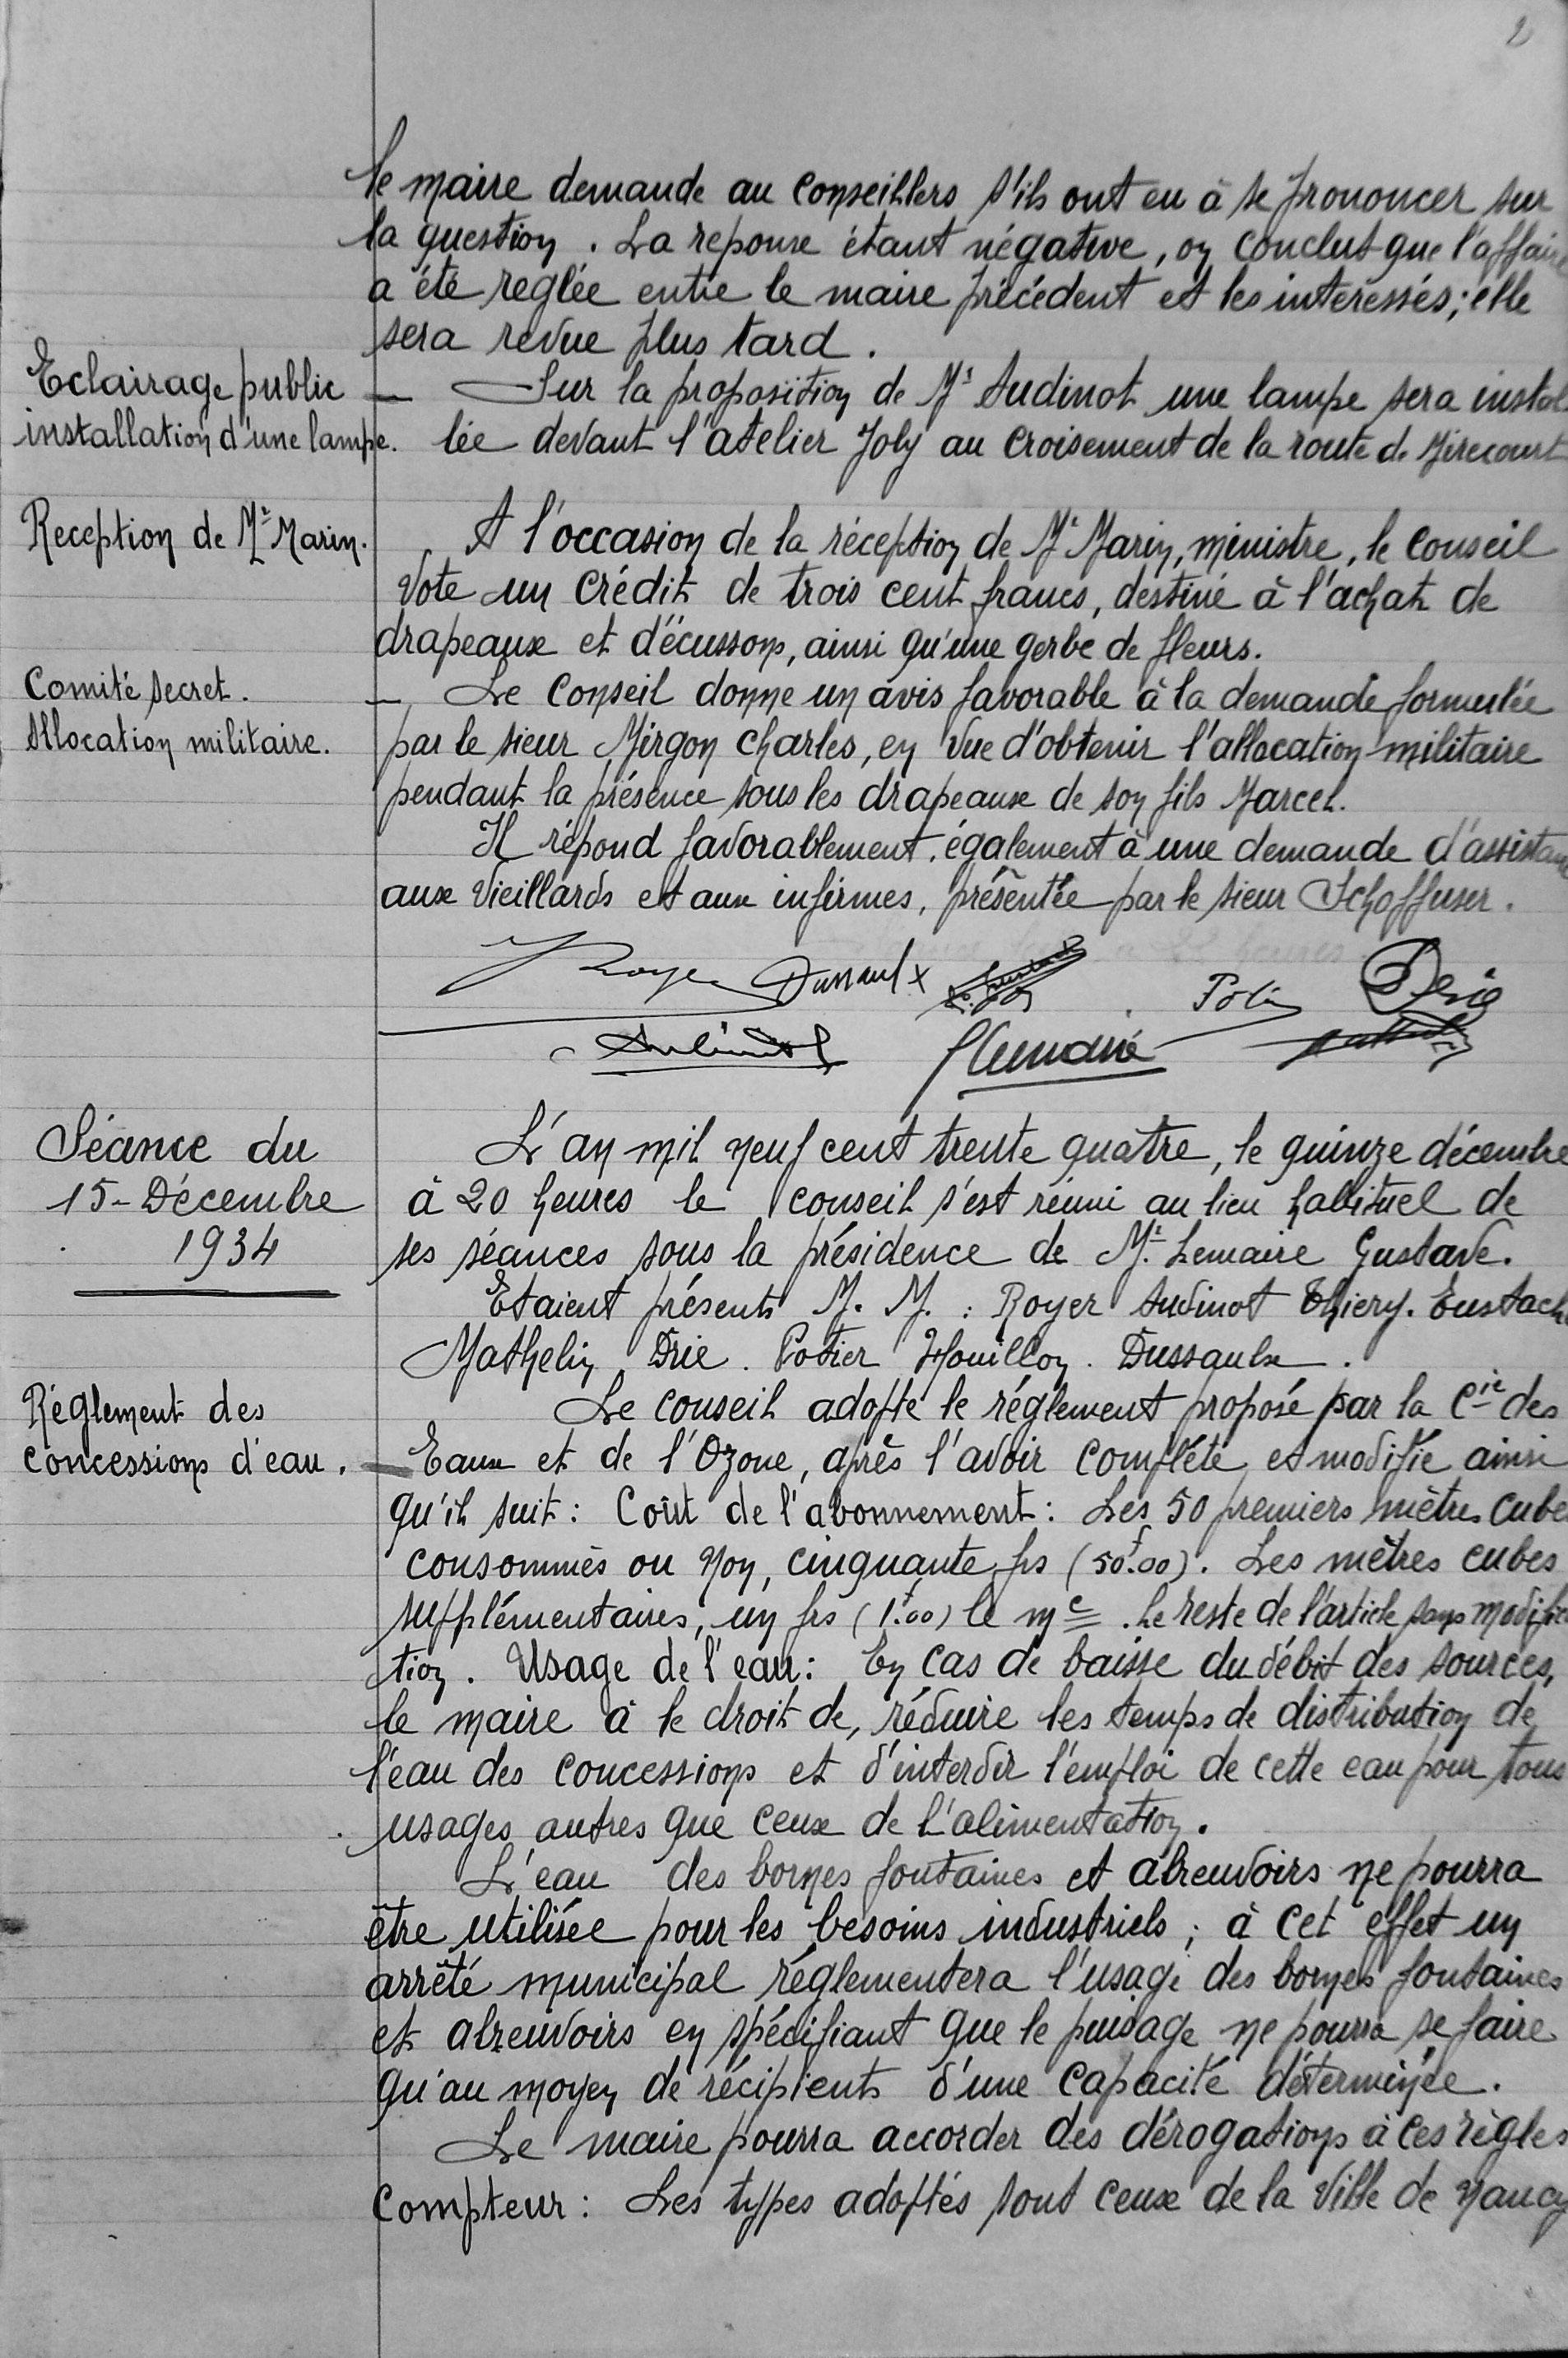 2
le maire demande au conseillers s'ils ont eu à se prononcer sur
la question. La reponse étant négative, on conclut que l'affaire
a été reglée entre le maire précédent et les interessés; elle
sera revue plus tard.
Eclairage public
installation d'une lampe.
— Sur la proposition de Mr Audinot une lampe sera instal
lée devant l'atelier Joly au croisement de la route de Mirecourt
Reception de Mr Marin.
A l'occasion de la réception de Mr Marin, ministre, le conseil
vote un crédit de trois cent francs, destiné à l'achat de
drapeaux et d'écussons, ainsi qu'une gerbe de fleurs.
Comité secret.
Allocation militaire.
— Le Conseil donne un avis favorable à la demande formulée
par le sieur Mirgon Charles, en vue d'obtenir l'allocation militaire
pendant la présence sous les drapeaux de son fils Marcel.
Il répond favorablement, également à une demande d'assistance
aux vieillards et aux infirmes, présentée par le sieur Schoffuser.
Royer Dussaulx Potier Drie
Audinot Lemaire Mathelin
Séance du
15 - Décembre
1934
L'an mil neuf cent trente quatre, le quinze décembre
à 20 heures le conseil s'est réuni au lieu habituel de
ses séances sous la présidence de Mr Lemaire Gustave.
Etaient présents M. M. : Royer Audinot Thiery. Eustache
Mathelin Drie. Potier Houillon. Dussaulx.
Réglement des
concessions d'eau.
Le conseil adopte le réglement proposé par la Cie des
— Eaux et de l'Ozone, après l'avoir complété et modifié ainsi
qu'il suit : Coût de l'abonnement : Les 50 premiers mètres cubes
consommés ou non, cinquante frs (50f.00). Les mètres cubes
supplémentaires, un frs (1f.00) le mc. Le reste de l'article sans modifica
tion. Usage de l'eau : En cas de baisse du débit des sources,
le maire à le droit de, réduire les temps de distribution de
l'eau des concessions et d'interdir l'emploi de cette eau pour tous
usages autres que ceux de l'alimentation.
L'eau des bornes fontaines et abreuvoirs ne pourra
être utilisée pour les besoins industriels ; à cet effet un
arrêté municipal réglementera l'usage des bornes fontaines
et abreuvoirs en spécifiant que le puisage ne pourra se faire
qu'au moyen de récipients d'une capacité déterminée.
Le maire pourra accorder des dérogations à ces règles
Compteur : Les types adoptés sont ceux de la Ville de Nancy